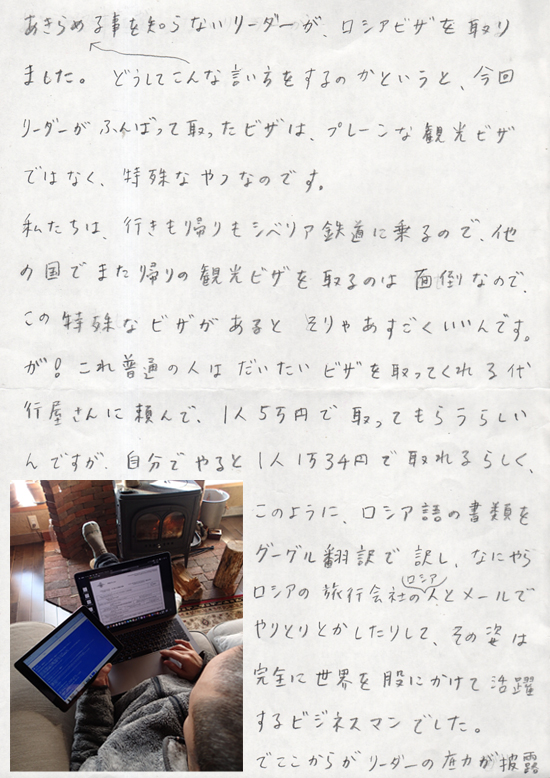 あきらめる事を知らないリーダーが、ロシアビザを取り
ました。どうしてこんな言い方をするのかというと、今回
リーダーがふんばって取ったビザは、プレーンな観光ビザ
ではなく、特殊なやつなのです。
私たちは、行きも帰りもシベリア鉄道に乗るので、他
の国でまた帰りの観光ビザを取るのは面倒なので、
この特殊なビザがあるとそりゃあすごくいいんです。
が!これ普通の人はだいたいビザを取ってくれる代
行屋さんに頼んで、1人5万円で取ってもらうらしい
んですが、自分でやると1人1万34円で取れるらしく、
このように、ロシア語の書類を
グーグル翻訳で訳し、なにやら
ロシアの旅行会社の人とメールで
ロシア
やりとりとかしたりして、その姿は
完全に世界を股にかけて活躍
するビジネスマンでした。
でここからがリーダーの底力が披露